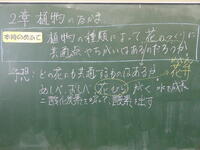 2章 植物のなかま
本時のめあて 植物の種類によって花のつくりに
共通点やちがいはあるのだろうか
予想：どの花にも共通するものはある
めしべ、おしべ（花むら）がく 水で成長
二酸化炭素を吸って、酸素を出す